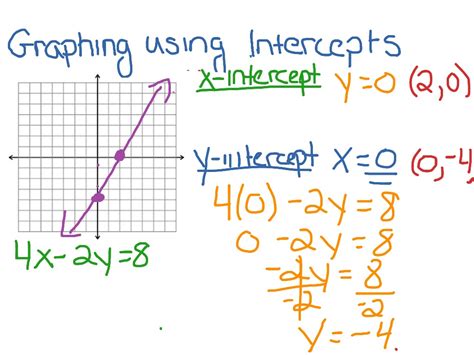 Graphing using Intercepts
x-intercept y=0 (2,0)
y-intercept x=0 (0,-4
4(0) -2y=8
0 -2y=8
-2y = 8
-2 -2
y=-4
4x-2y=8